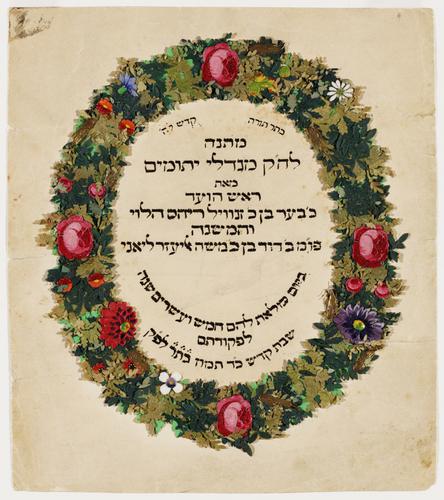 כתר תורה
קדש לה'
מתנה
לחק מגדלי יתומים
מאת
ראש הועד
כ' בער בן כ' זנוויל ריהם הלוי
והמשנה
דוד בן כ' משה אליעזר ליאני
ביום מלאת להם חמש ועשרים שנה
לפקודתם
שבת קדש כד תמוז כתר לפק